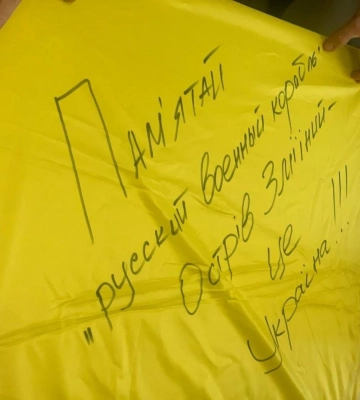 Пам'ятай
"русский военный корабль:
Острів Зміїний-
це
Україна!!!